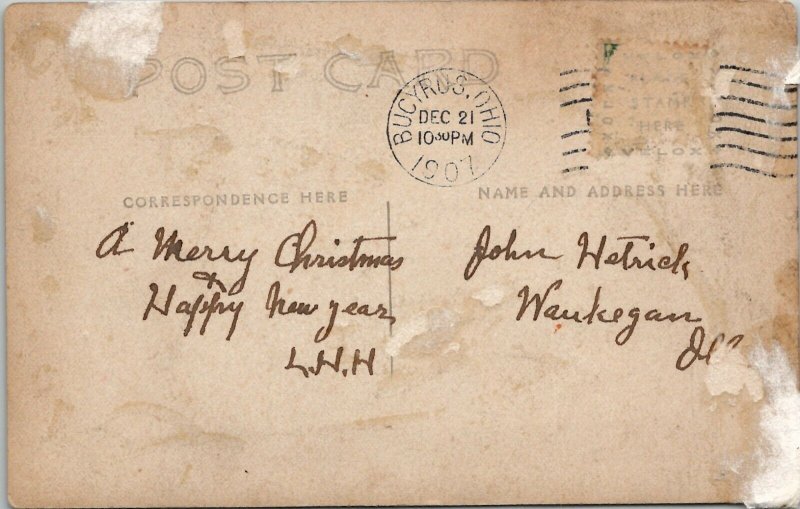 POST CARD
BUCYRUS, OHIO
DEC 21
1030PM
1907
PLACE
STAMP
HERE
VELOX
CORRESPONDENCE HERE
NAME AND ADDRESS HERE
A Merry Christmas
&
Happy New year
L.H.H
John Hetrick
Waukegan
Ill